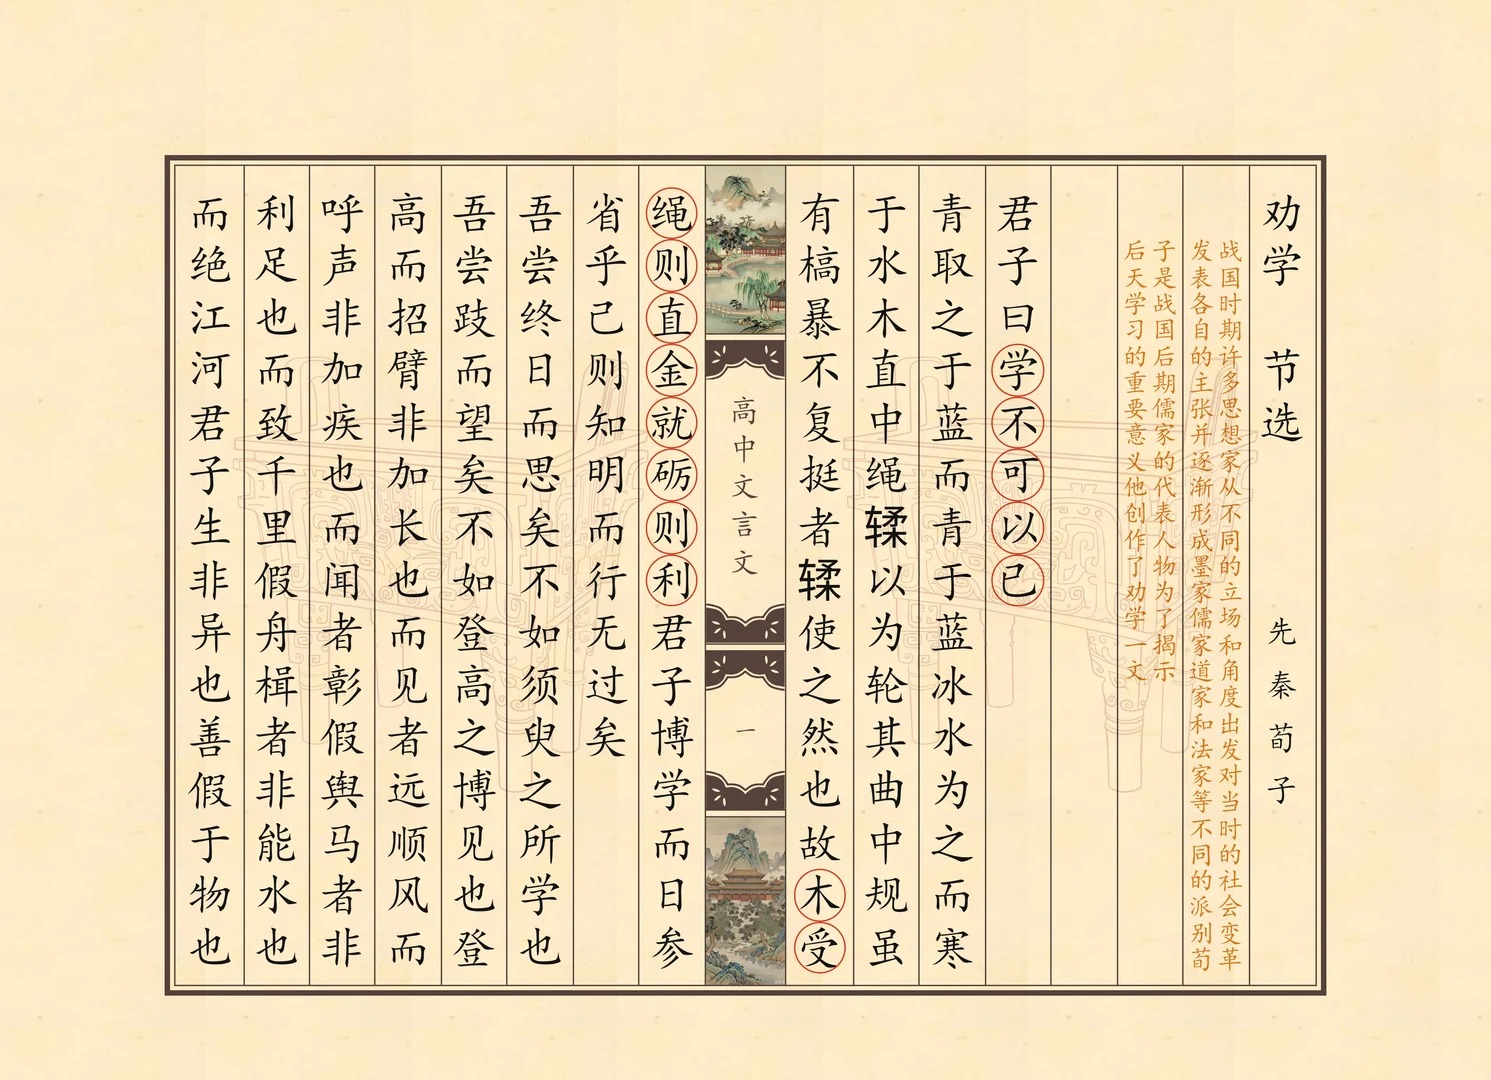 劝学 节选 先秦荀子
战国时期许多思想家从不同的立场和角度出发对当时的社会变革
发表各自的主张并逐渐形成墨家儒家道家和法家等不同的派别荀
子是战国后期儒家的代表人物为了揭示
后天学习的重要意义他创作了劝学一文
君子曰学不可以已
青取之于蓝而青于蓝冰水为之而寒
于水木直中绳𫐓以为轮其曲中规虽
有槁暴不复挺者𫐓使之然也故木受
高中文言文
一
绳则直金就砺则利君子博学而日参
省乎己则知明而行无过矣
吾尝终日而思矣不如须臾之所学也
吾尝跂而望矣不如登高之博见也登
高而招臂非加长也而见者远顺风而
呼声非加疾也而闻者彰假舆马者非
利足也而致千里假舟楫者非能水也
而绝江河君子生非异也善假于物也